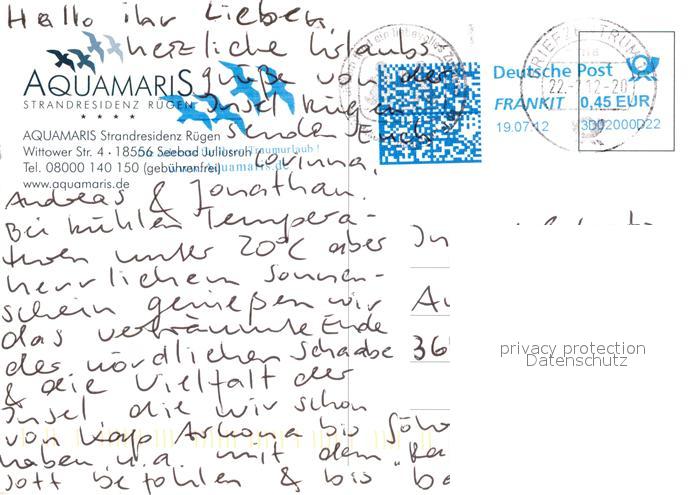 Hallo ihr Lieben,
herzliche Urlaubs
grüße von der
Insel Rügen
senden Euch
Corinna,
Andreas & Jonathan.
Bei kühlen Tempera-
turen unter 20°C aber
herrlichem Sonnen-
schein genießen wir
das verträumte Ende
der nördlichen Schaabe
& die Vielfalt der
Insel die wir schon
von Kap Arkona bis
haben u.a. mit dem
& bis
AQUAMARIS
STRANDRESIDENZ RÜGEN
★ ★ ★ ★
AQUAMARIS Strandresidenz Rügen
Wittower Str. 4 · 18556 Seebad Juliusruh
Tel. 08000 140 150 (gebührenfrei)
www.aquamaris.de
Traumurlaub !
www.aquamaris.de
Deutsche Post
FRANKIT 0,45 EUR
19.07.12 3D02000D22
BRIEFZENTRUM
22.-7.12-20
36
privacy protection
Datenschutz